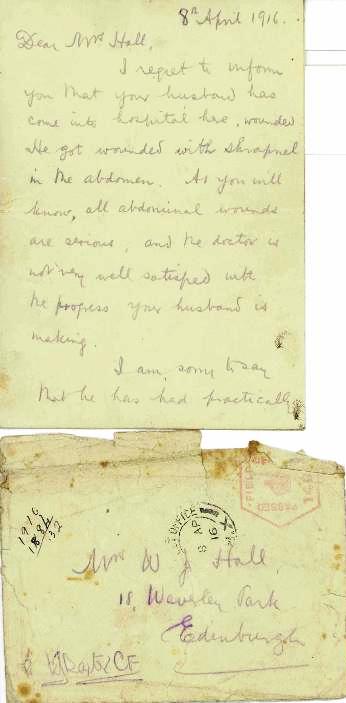 8th April 1916.
Dear Mrs Hall,
I regret to inform
you that your husband has
come into hospital here, wounded.
He got wounded with shrapnel
in the abdomen. As you will
know, all abdominal wounds
are serious, and the doctor is
not very well satisfied with
the progress your husband is
making.
I am sorry to say
that he has had practically
FIELD
PASSED
OFFICE
8 AP
16
1916
1884
32
Mrs W J Hall,
18, Waverley Park
Edinburgh
CF